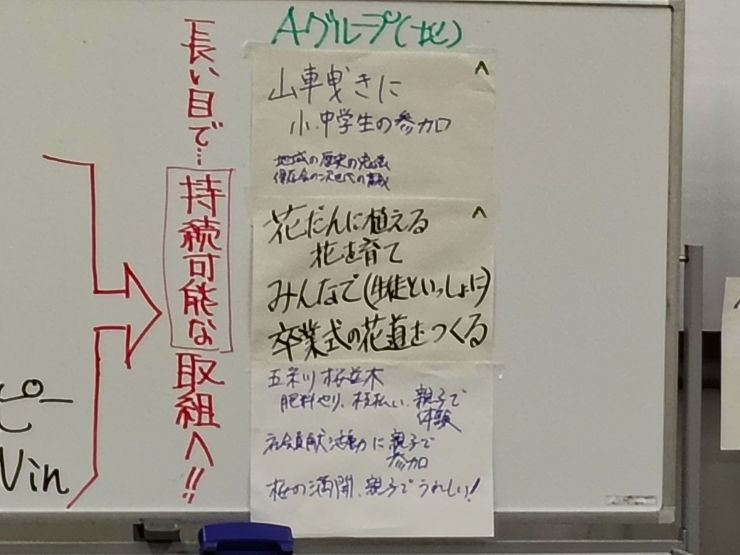 Aグループ(地)
長い目で…持続可能な取組へ!!
山車曳きに
小・中学生の参加
地域の歴史の
次世代の
花だんに植える
花を育て
みんなで(生徒といっしょに)
卒業式の花道をつくる
五条川桜並木
肥料やり、枝払い、親子で
体験
社会貢献活動に親子で
参加
桜の満開、親子でうれしい!
ピー
Win